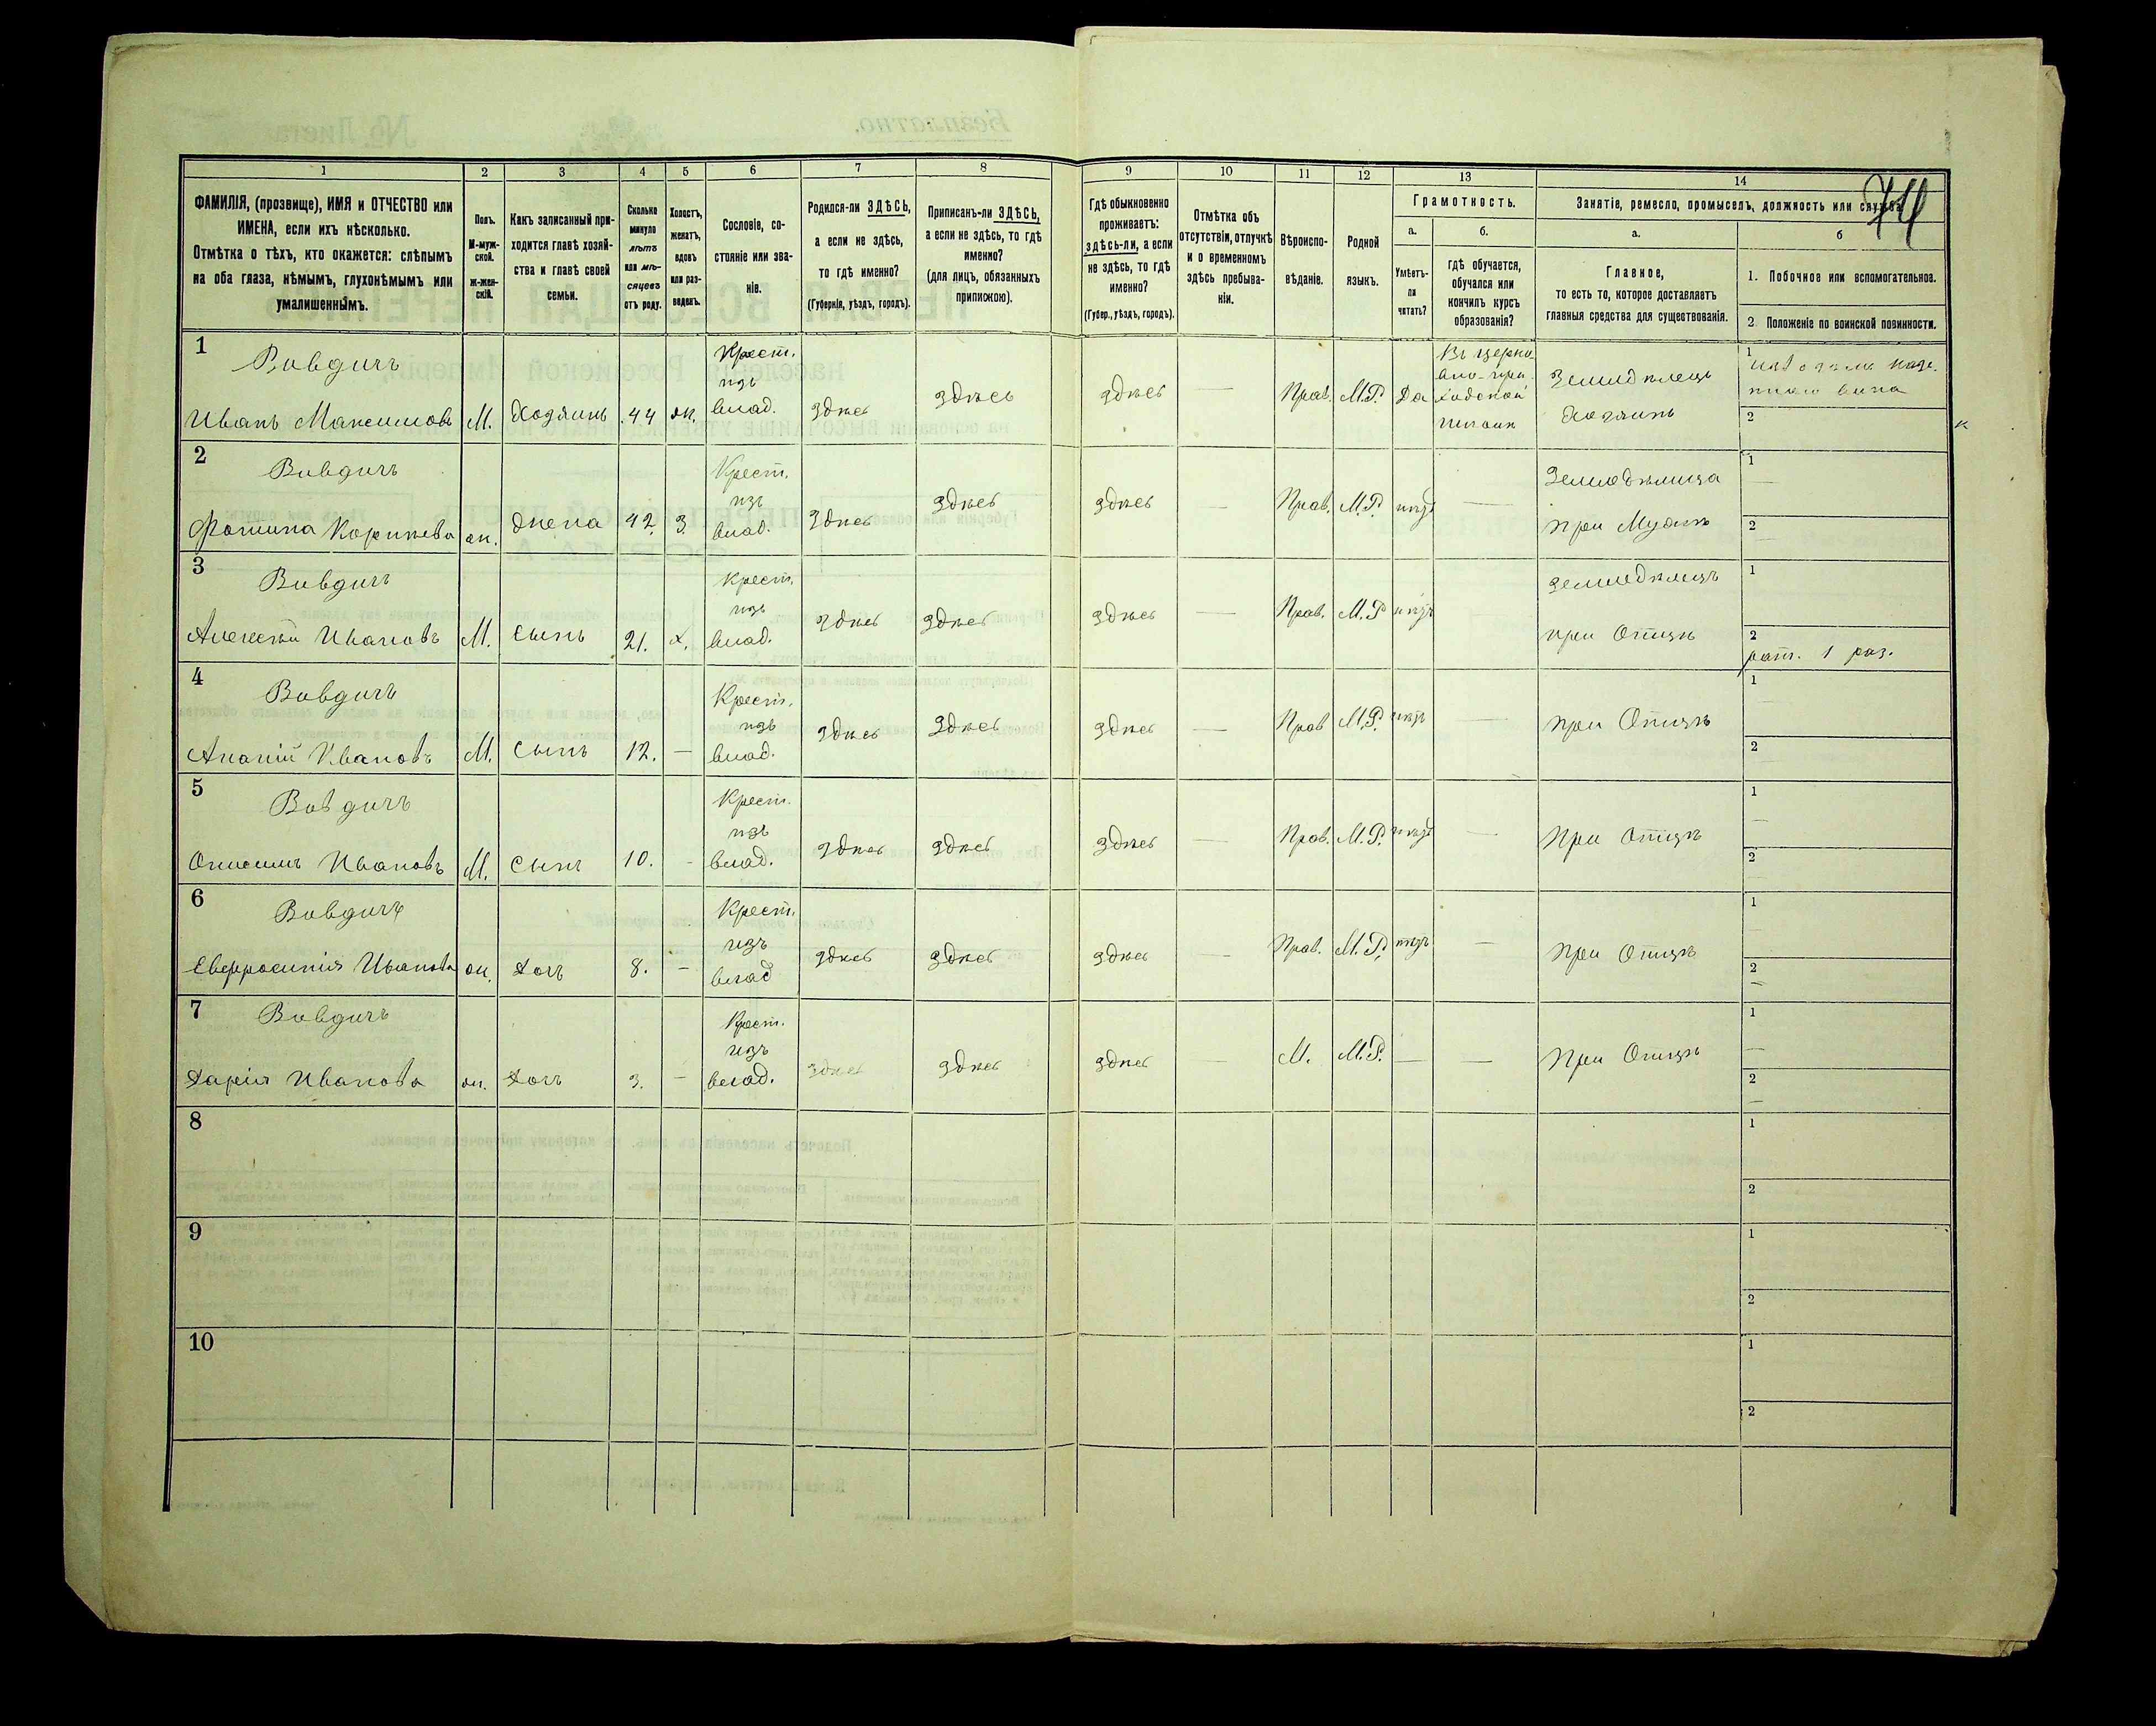 74
1 2 3 4 5 6 7 8 9 10 11 12 13 14
ФАМИЛІЯ, (прозвище), ИМЯ и ОТЧЕСТВО или
ИМЕНА, если ихъ нѣсколько.
Отмѣтка о тѣхъ, кто окажется: слѣпымъ
на оба глаза, нѣмымъ, глухонѣмымъ или
умалишеннымъ.
Полъ.
М-муж-
ской.
ж-жен-
скій.
Какъ записанный при-
ходится главѣ хозяй-
ства и главѣ своей
семьи.
Сколько
минуло
лѣтъ
или мѣ-
сяцевъ
отъ роду.
Холостъ,
женатъ,
вдовъ
или раз-
веденъ.
Сословіе, со-
стояніе или зва-
ніе.
Родился-ли ЗДѢСЬ,
а если не здѣсь,
то гдѣ именно?
(Губернія, уѣздъ, городъ).
Приписанъ-ли ЗДѢСЬ,
а если не здѣсь, то гдѣ
именно?
(для лицъ, обязанныхъ
припискою).
Гдѣ обыкновенно
проживаетъ:
здѣсь-ли, а если
не здѣсь, то гдѣ
именно?
(Губер., уѣздъ, городъ).
Отмѣтка объ
отсутствіи, отлучкѣ
и о временномъ
здѣсь пребыва-
ніи.
Вѣроиспо-
вѣданіе.
Родной
языкъ.
Грамотность.
а.
Умѣетъ-
ли
читать?
б.
гдѣ обучается,
обучался или
кончилъ курсъ
образованія?
Занятіе, ремесло, промыселъ, должность или служба
а.
Главное,
то есть то, которое доставляетъ
главныя средства для существованія.
б
1. Побочное или вспомогательное.
2 Положеніе по воинской повинности.
1
Вовдичъ
Иванъ Максимовъ
М.
Хозяинъ
44
ж.
Крест.
изъ
влад.
здѣсь
здѣсь
здѣсь
—
Прав.
М.Р.
Да
Въ церко
вно-при
ходской
школѣ
Земледѣлецъ
Хозяинъ
1
2
2
Вовдичъ
Фотина Корнѣева
ж.
Жена
42
З.
Крест.
изъ
влад.
здѣсь
здѣсь
здѣсь
—
Прав.
М.Р.
нѣтъ
—
Земледѣлица
при Мужѣ
1
—
2
—
3
Вовдичъ
Алексѣй Ивановъ
М.
Сынъ
21.
х.
Крест.
изъ
влад.
здѣсь
здѣсь
здѣсь
—
Прав.
М.Р
нѣтъ
—
Земледѣлецъ
при Отцѣ
1
2
рат. 1 раз.
4
Вовдичъ
Ананій Ивановъ
М.
Сынъ
12.
—
Крест.
изъ
влад.
здѣсь
здѣсь
здѣсь
—
Прав
М.Р.
нѣтъ
—
при Отцѣ
1
—
2
—
5
Вовдичъ
Онисимъ Ивановъ
М.
Сынъ
10.
-
Крест.
изъ
влад.
здѣсь
здѣсь
здѣсь
—
Прав.
М.Р.
нѣтъ
—
При Отцѣ
1
—
2
—
6
Вовдичъ
Евфросинія Иванова
ж.
Доч
8.
—
Крест.
изъ
влад
здѣсь
здѣсь
здѣсь
—
Прав.
М.Р.
нѣтъ
—
При Отцѣ
1
—
2
—
7
Вовдичъ
Дарія Иванова
ж.
Доч
3.
—
Крест.
изъ
влад.
здѣсь
здѣсь
здѣсь
—
М.
М.Р.
—
—
При Отцѣ
1
—
2
—
8
1
2
9
1
2
10
1
2